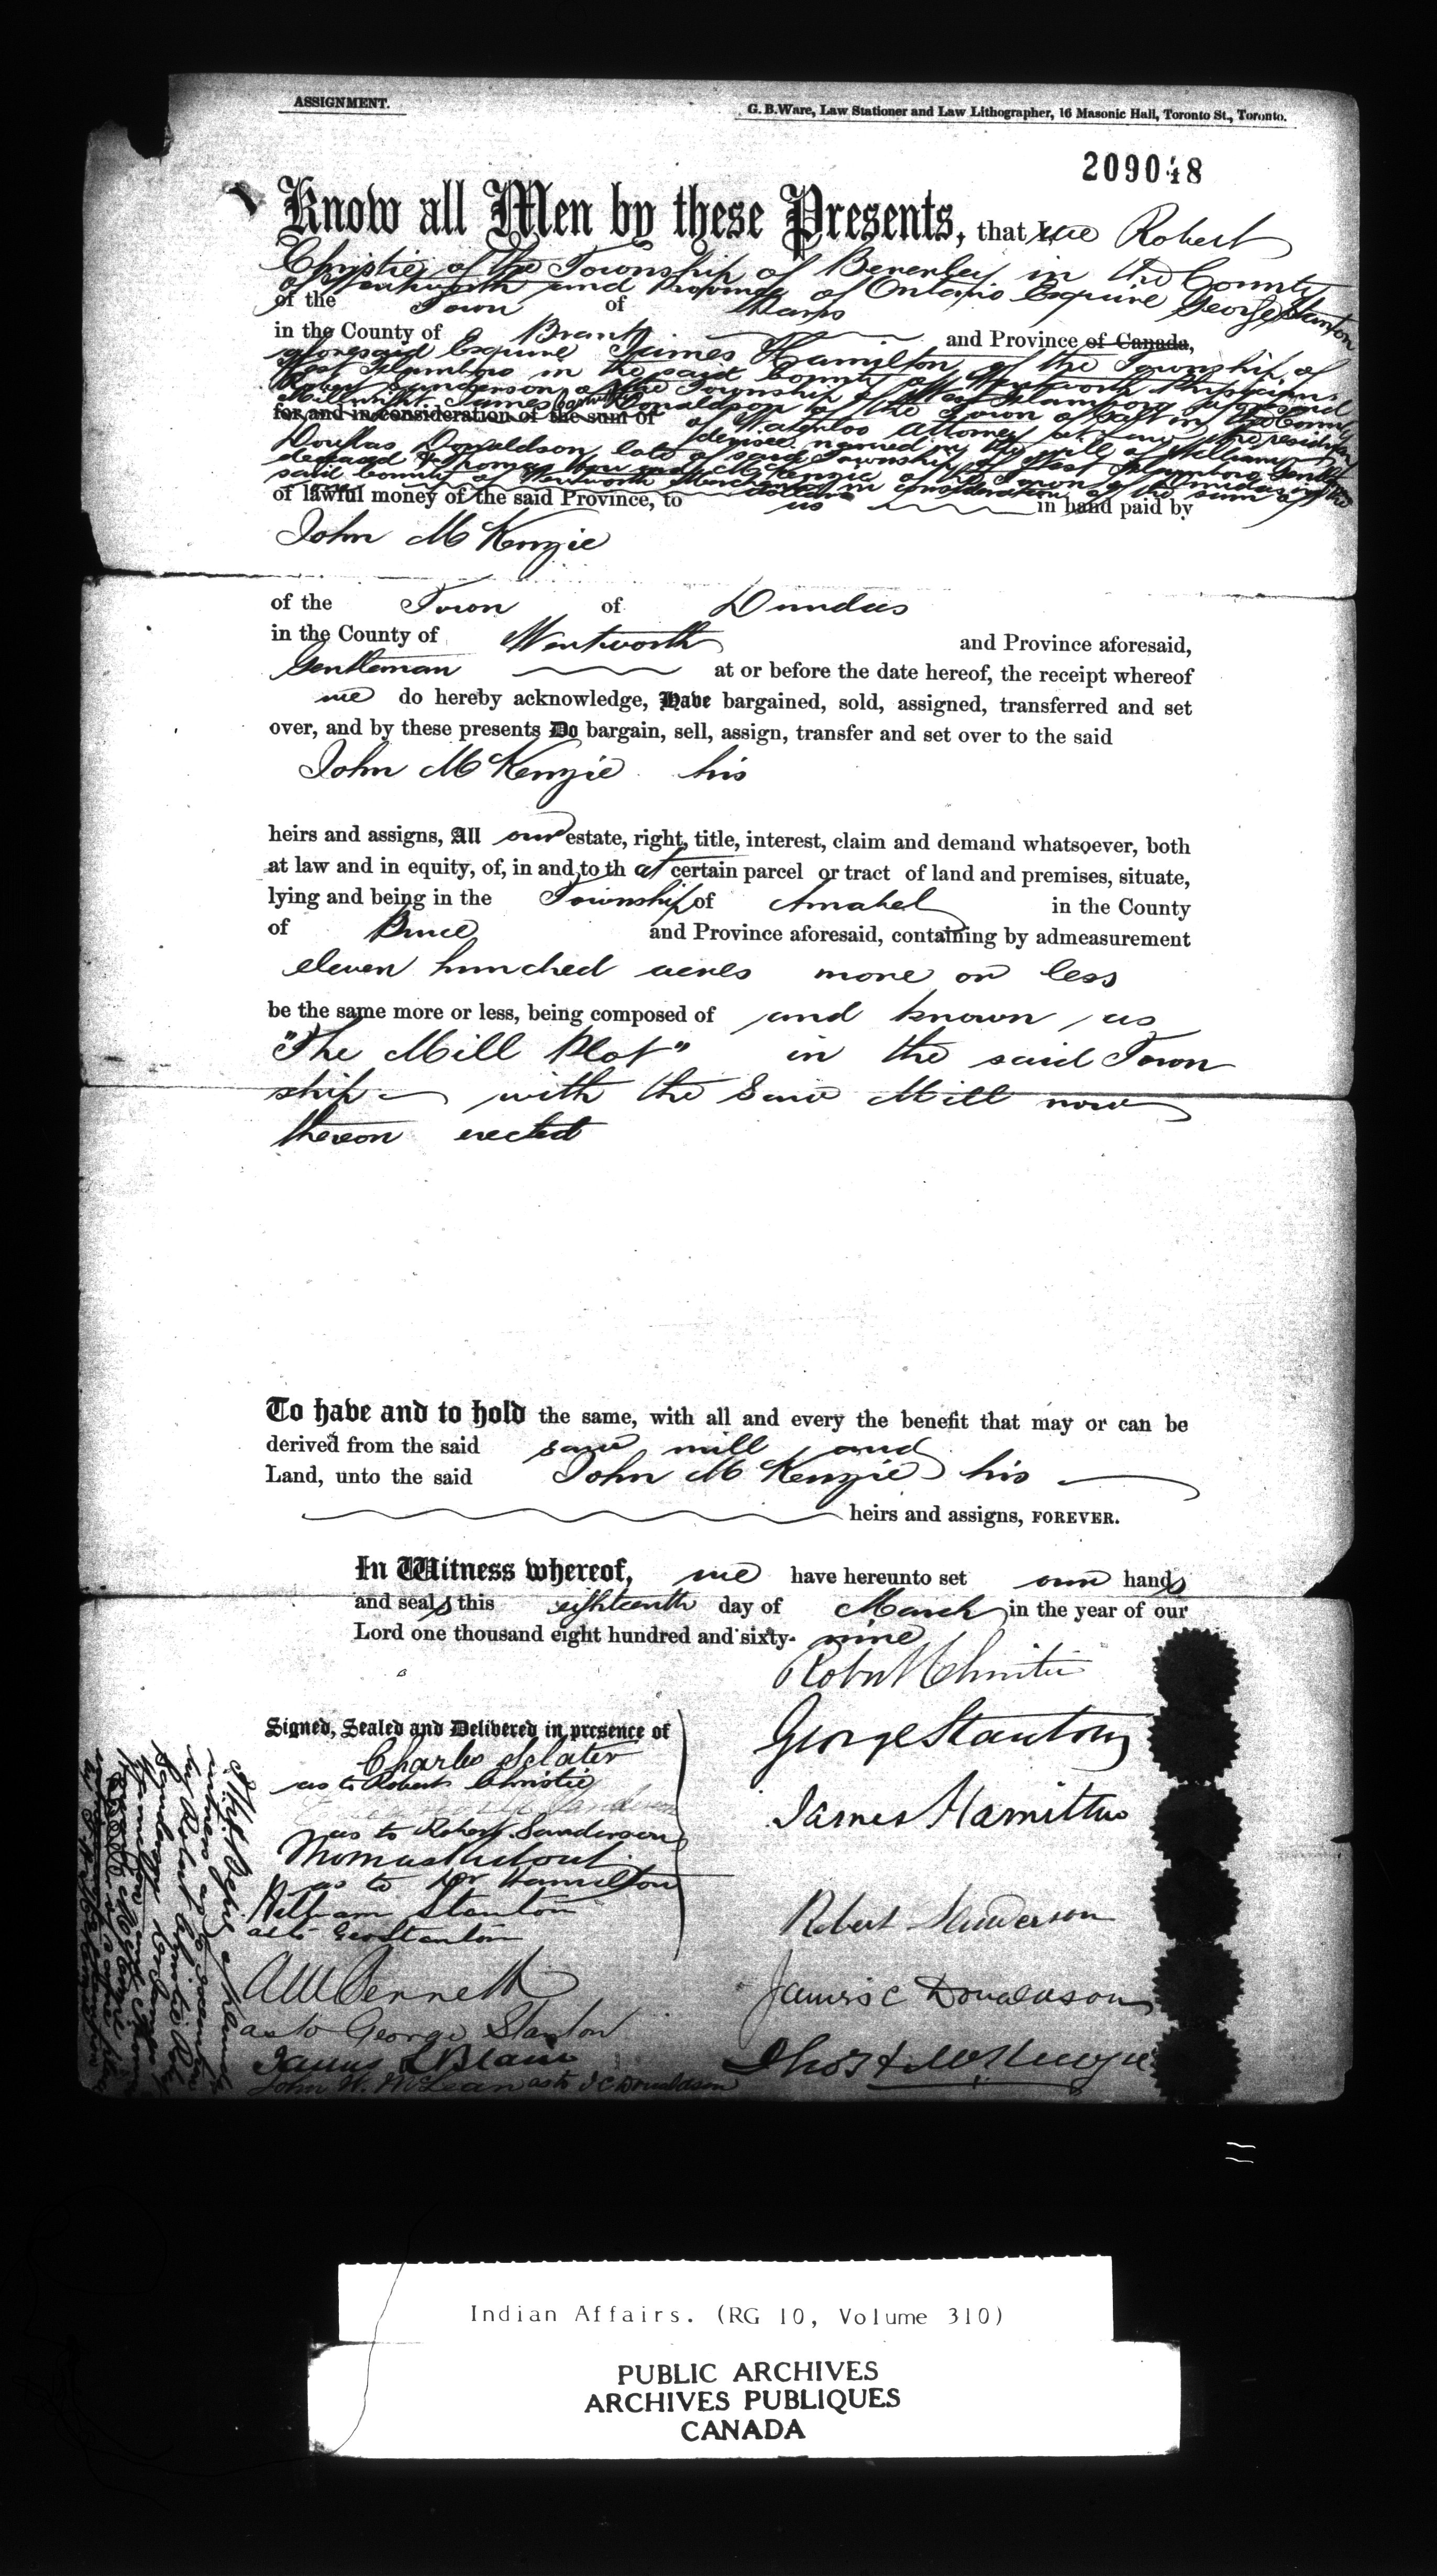 ASSIGNMENT.
G. B. Ware, Law Stationer and Law Lithographer, 16 Masonic Hall, Toronto St., Toronto.
209048
Know all Men by these Presents, that we Robert
Christie of the Township of Beverley in the County
of Wentworth and Province of Ontario Esquire George Stanton
of the Town of Paris
in the County of Brant and Province of Canada,
aforesaid Esquire James Hamilton of the Township of
West Flamboro in the said County of Wentworth Physician
Robert Sanderson of the Township of West Flamboro aforesaid
Millwright James Donaldson of the Town of Galt in the County
for and in consideration of the sum of
of Waterloo Attorney at Law the residuary
devisee named in the will of William
Douglas Donaldson late of said Township of West Flamboro
deceased Thomas McKenzie of the Town of Dundas in the
said County of Wentworth Merchant in consideration of the sum of
of lawful money of the said Province, to us in hand paid by
John McKenzie
of the Town of Dundas
in the County of Wentworth and Province aforesaid,
Gentleman at or before the date hereof, the receipt whereof
we do hereby acknowledge, Have bargained, sold, assigned, transferred and set
over, and by these presents Do bargain, sell, assign, transfer and set over to the said
John McKenzie his
heirs and assigns, All our estate, right, title, interest, claim and demand whatsoever, both
at law and in equity, of, in and to that certain parcel or tract of land and premises, situate,
lying and being in the Township of Amabel in the County
of Bruce and Province aforesaid, containing by admeasurement
eleven hundred acres more or less
be the same more or less, being composed of and known as
"The Mill Plot" in the said Town
ship with the Saw Mill now
thereon erected
To have and to hold the same, with all and every the benefit that may or can be
derived from the said saw mill and
Land, unto the said John McKenzie his
heirs and assigns, FOREVER.
In Witness whereof, we have hereunto set our hands
and seals this eighteenth day of March in the year of our
Lord one thousand eight hundred and sixty-nine
Robert Christie
Signed, Sealed and Delivered in presence of
George Stanton
Charles Sclater
as to Robert Christie
James Hamilton
as to Robert Sanderson
as to Dr Hamilton
William Stanton
as to Geo Stanton
Robert Sanderson
as to George Stanton
James C Donaldson
John W. McLean as to J C Donaldson
Thos H McKenzie
Indian Affairs. (RG 10, Volume 310)
PUBLIC ARCHIVES
ARCHIVES PUBLIQUES
CANADA